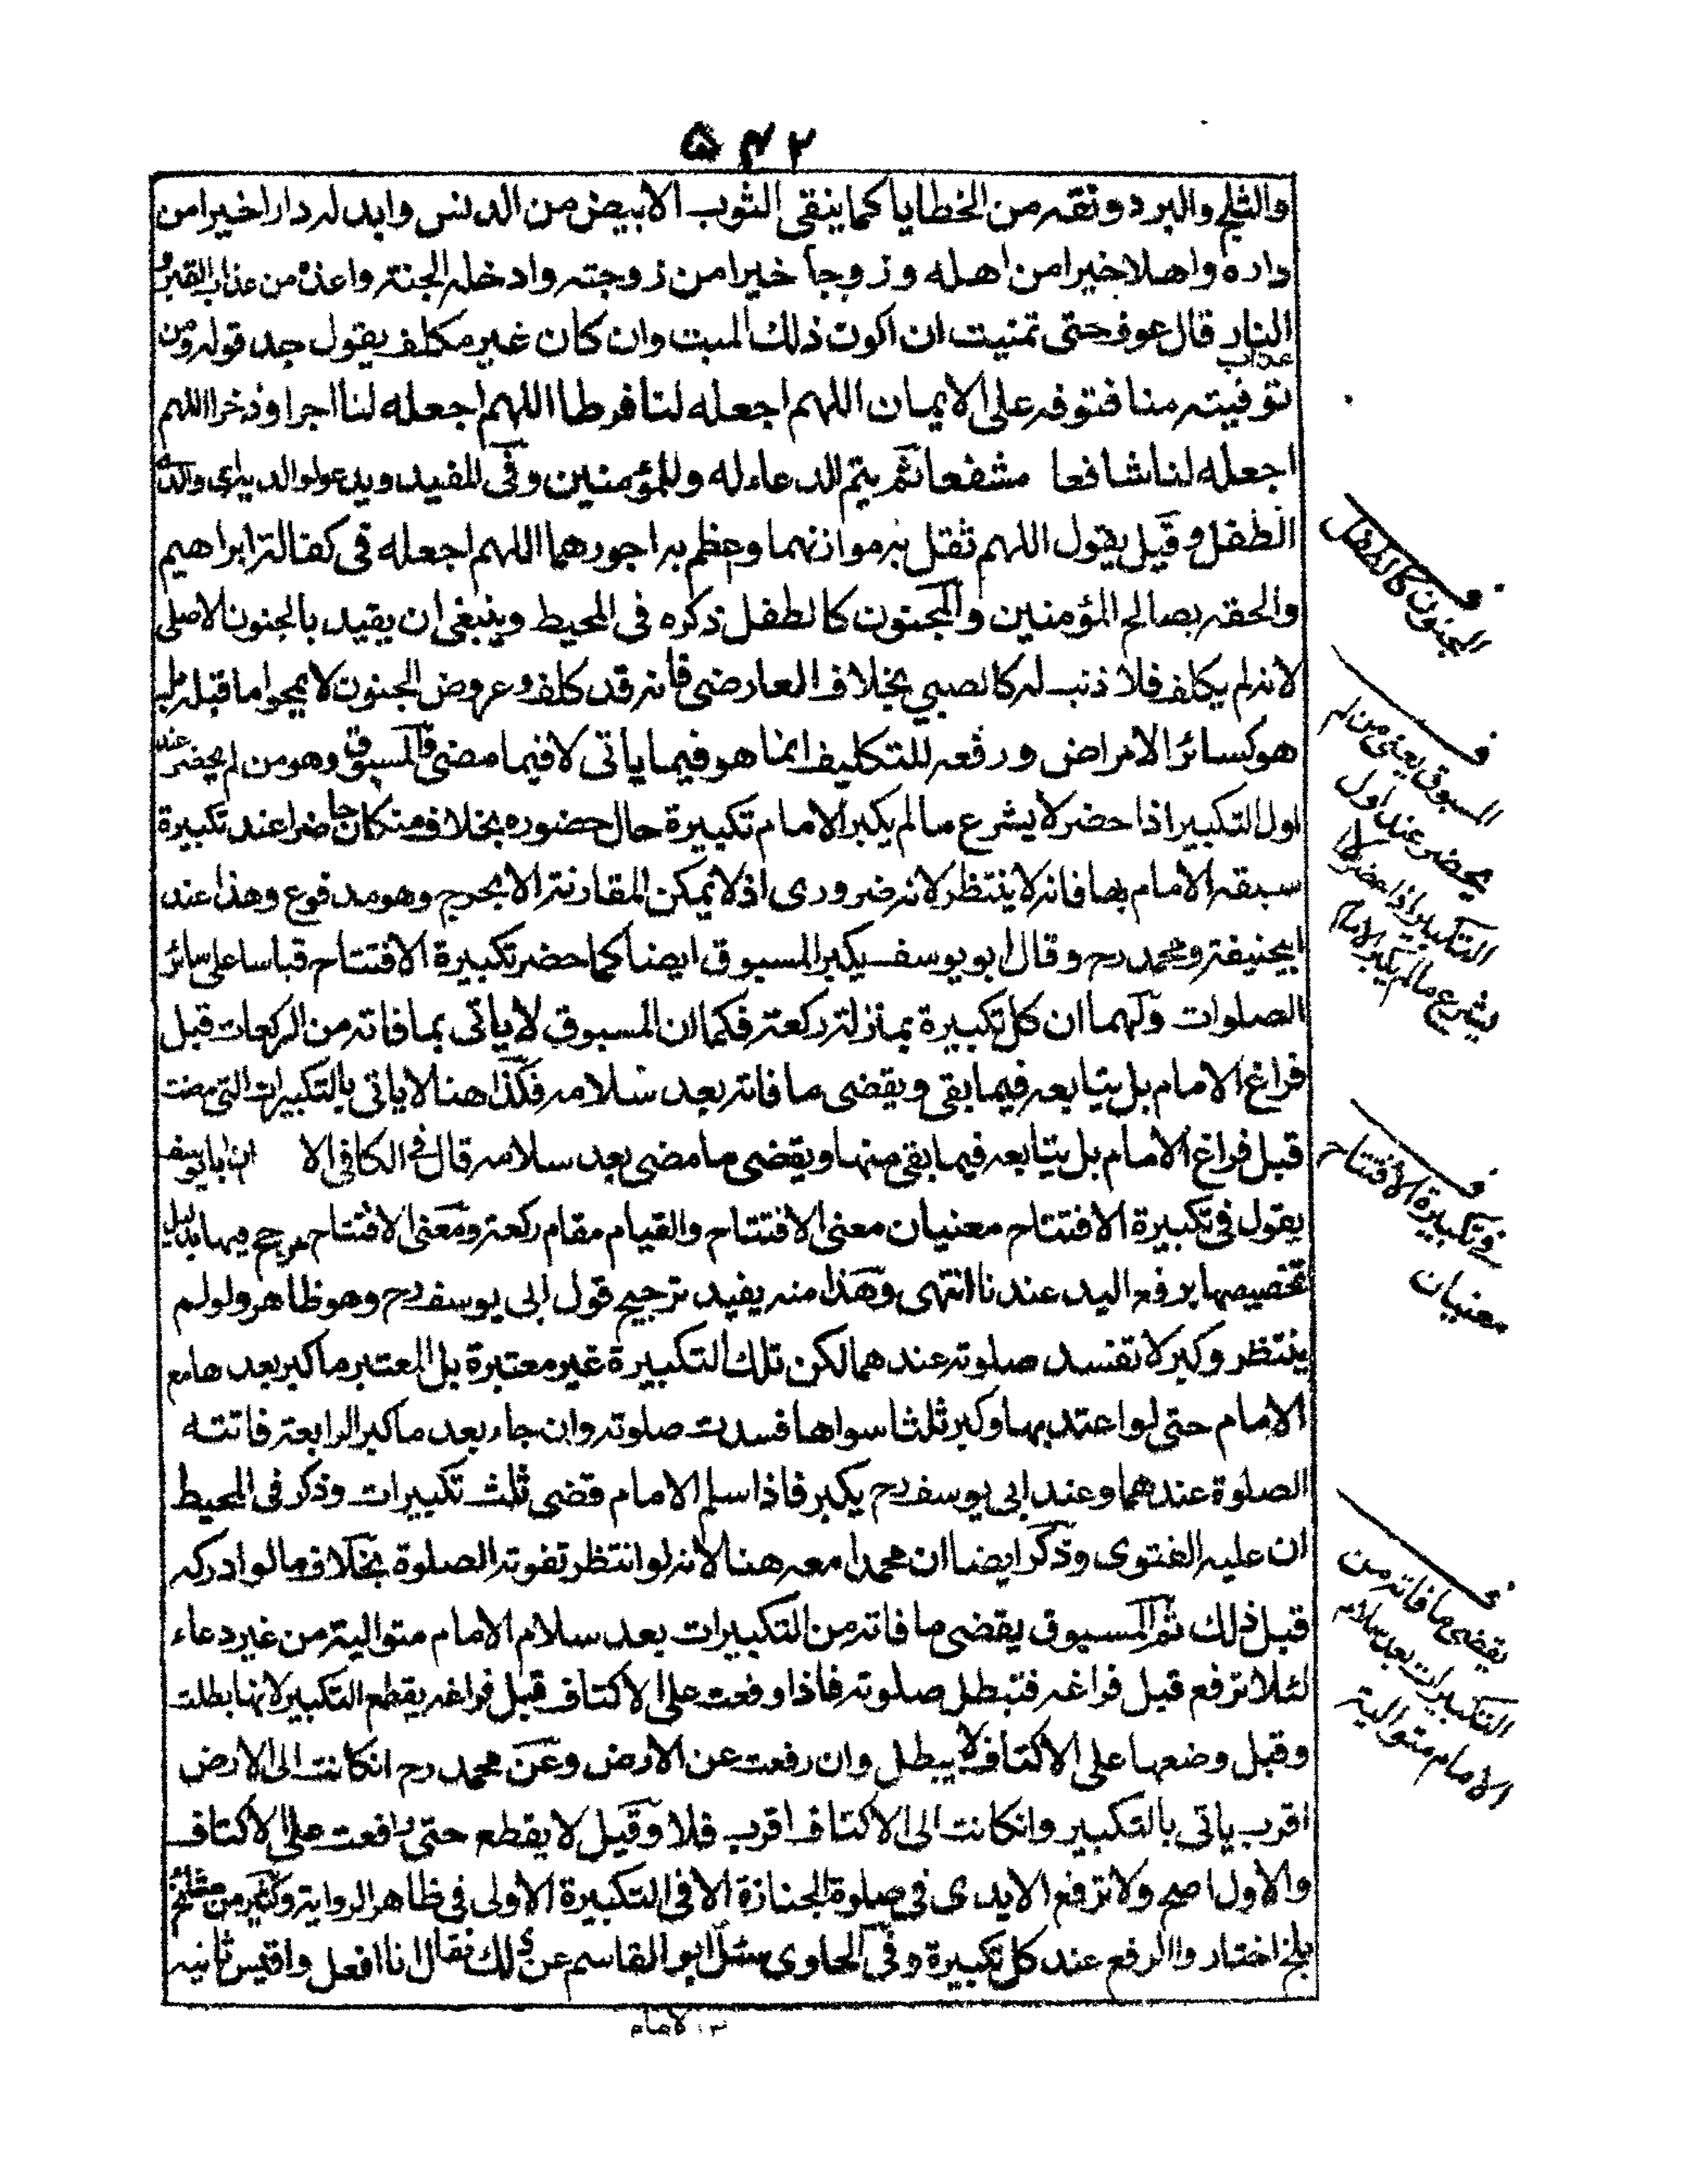 ۵۴۲
والثلج والبرد ونقه من الخطايا كما ينقى الثوب الابيض من الدنس وابدله دارا خيرا من
داره واهلا خيرا من اهله وزوجا خيرا من زوجته وادخله الجنة واعذه من عذاب القبر و
عذاب النار قال عوف حتى تمنيت ان اكون ذلك الميت وان كان غير مكلف يقول بعد قوله ومن
توفيته منا فتوفه على الايمان اللهم اجعله لنا فرطا اللهم اجعله لنا اجرا وذخرا اللهم
اجعله لنا شافعا مشفعا ثم يتم الدعاء له وللمؤمنين وفى المفيد ويدعو لوالديه اى والدى
الطفل وقيل يقول اللهم ثقل به موازنهما وعظم به اجورهما اللهم اجعله فى كفالة ابراهيم
والحقه بصالح المؤمنين والمجنون كالطفل ذكره فى المحيط وينبغى ان يقيد بالجنون الاصلى
لانه لم يكلف فلا ذنب له كالصبى بخلاف العارضى فانه قد كلف وعروض الجنون لا يمحوا ما قبله بل
هو كسائر الامراض ورفعه للتكليف انما هو فيما ياتى لا فيما مضى والمسبوق وهو من لم يحضر عند
اول التكبير اذا حضر لا يشرع ما لم يكبر الامام تكبيرة حال حضوره بخلاف من كان حاضرا عند تكبيرة
سبقه الامام بها فانه لا ينتظر لانه ضرورى اذ لا يمكن المقارنة الا بحرج وهو مدفوع وهذا عند
ابيحنيفة ومحمد رح وقال ابو يوسف يكبر المسبوق ايضا كما حضر تكبيرة الافتتاح قياسا على سائر
الصلوات ولهما ان كل تكبيرة بمنزلة ركعة فكما ان المسبوق لا ياتى بما فاته من الركعات قبل
فراغ الامام بل يتابعه فيما بقى ويقضى ما فاته بعد سلامه فكذا هنا لا ياتى بالتكبيرات التى مضت
قبل فراغ الامام بل يتابعه فيما بقى منها ويقضى ما مضى بعد سلامه قال فى الكافى الا ان ابا يوسف
يقول فى تكبيرة الافتتاح معنيان معنى الافتتاح والقيام مقام ركعة ومعنى الافتتاح مرجح فيها بدليل
تخصيصها برفع اليد عندنا انتهى وهذا منه يفيد ترجيح قول ابى يوسف رح وهو ظاهر ولو لم
ينتظر وكبر لا تفسد صلوته عندهما لكن تلك التكبيرة غير معتبرة بل المعتبر ما كبر بعدها مع
الامام حتى لو اعتد بها وكبر ثلثا سواها فسدت صلوته وان جاء بعد ما كبر الرابعة فاتته
الصلوة عندهما وعند ابى يوسف رح يكبر فاذا سلم الامام قضى ثلث تكبيرات وذكر فى المحيط
ان عليه الفتوى وذكر ايضا ان محمدا معه هنا لانه لو انتظر تفوته الصلوة بخلاف ما لو ادركه
قبل ذلك ثم المسبوق يقضى ما فاته من التكبيرات بعد سلام الامام متوالية من غير دعاء
لئلا ترفع قبل فراغه فتبطل صلوته فاذا وفعت على الاكتاف قبل فراغه يقطع التكبير لانها بطلت
وقبل وضعها على الاكتاف لا يبطل وان رفعت عن الارض وعن محمد رح انكانت الى الارض
اقرب ياتى بالتكبير وانكانت الى الاكتاف اقرب فلا وقيل لا يقطع حتى رافعت على الاكتاف
والاول اصح ولا ترفع الايدى فى صلوة الجنازة الا فى التكبيرة الاولى فى ظاهر الرواية وكثير من مشائخ
بلخ اختاروا الرفع عند كل تكبيرة وفى الحاوى سئل ابو القاسم عن ذلك فقال انا افعل واقيس ثانيه
الامام
ف المجنون كالطفل
ف المسبوق يعنى من لم
يحضر عند اول
التكبير اذا حضر لا
يشرع ما لم يكبر الامام
ف وتكبيرة الافتتاح
معنيان
ف يقضى ما فاته من
التكبيرات بعد سلام
الامام متوالية